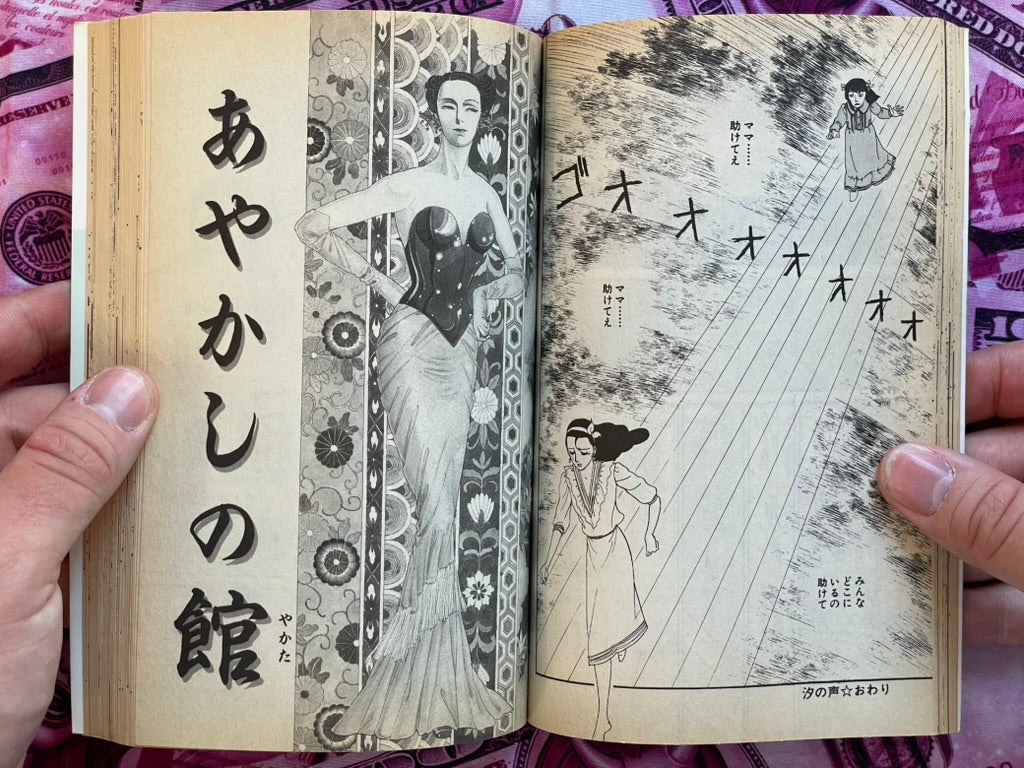 ママ……
助けてえ
ゴオオオオオオオ
ママ……
助けてえ
みんな
どこに
いるの
助けて
汐の声☆おわり
あやかしの館
やかた
UNITED STATES